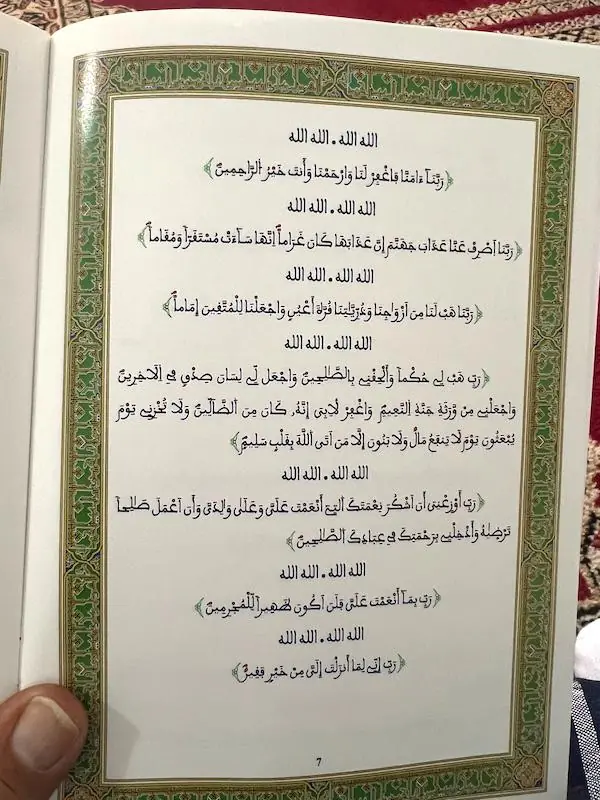 الله الله . الله الله
﴿رَبَّنَآ ءَامَنَّا فَاغْفِرْ لَنَا وَارْحَمْنَا وَأَنتَ خَيْرُ الرَّاحِمِينَ﴾
الله الله . الله الله
﴿رَبَّنَا اَصْرِفْ عَنَّا عَذَابَ جَهَنَّمَ إِنَّ عَذَابَهَا كَانَ غَرَاماً اِنَّهَا سَآءَتْ مُسْتَقَرّاً وَمُقَاماً﴾
الله الله . الله الله
﴿رَبَّنَا هَبْ لَنَا مِنَ اَزْوَاجِنَا وَذُرِّيَّٰتِنَا قُرَّةَ أَعْيُنٍ وَاجْعَلْنَا لِلْمُتَّقِينَ إِمَاماً﴾
الله الله . الله الله
﴿رَبِّ هَبْ لِي حُكْماً وَأَلْحِقْنِي بِالصَّٰلِحِينَ وَاجْعَل لِّي لِسَانَ صِدْقٍ فِي اِلَاخِرِينَ
وَاجْعَلْنِي مِنْ وَّرَثَةِ جَنَّةِ اِلنَّعِيمِ وَاغْفِرْ لِأَبِيَ إِنَّهُۥ كَانَ مِنَ اَلضَّآلِّينَ وَلَا تُخْزِنِي يَوْمَ
يُبْعَثُونَ يَوْمَ لَا يَنفَعُ مَالٌ وَلَا بَنُونَ إِلَّا مَنَ اَتَى اَللَّهَ بِقَلْبٍ سَلِيمٍ﴾
الله الله . الله الله
﴿رَبِّ أَوْزِعْنِي أَنَ اَشْكُرَ نِعْمَتَكَ اَلتِي أَنْعَمْتَ عَلَيَّ وَعَلَىٰ وَالِدَيَّ وَأَنَ اَعْمَلَ صَٰلِحاً
تَرْضِيٰهُ وَأَدْخِلْنِي بِرَحْمَتِكَ فِي عِبَادِكَ اَلصَّٰلِحِينَ﴾
الله الله . الله الله
﴿رَبِّ بِمَآ أَنْعَمْتَ عَلَيَّ فَلَنَ اَكُونَ ظَهِيراً لِّلْمُجْرِمِينَ﴾
الله الله . الله الله
﴿رَبِّ إِنِّي لِمَآ أَنزَلْتَ إِلَيَّ مِنْ خَيْرٍ فَقِيرٌ﴾
7